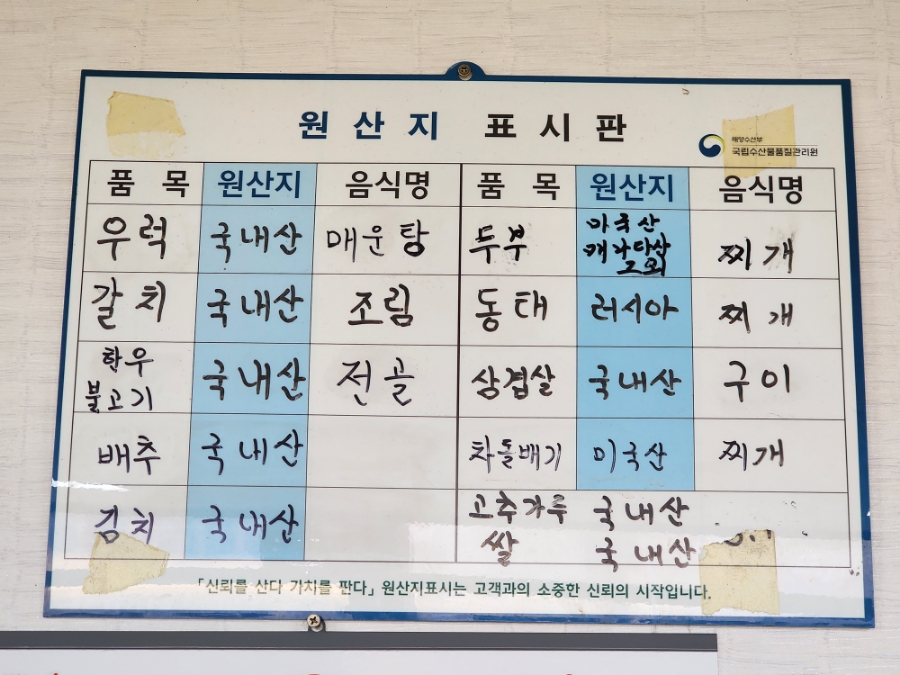 원산지 표시판
해양수산부
국립수산물품질관리원
품목 원산지 음식명 품목 원산지 음식명
우럭 국내산 매운탕 두부 미국산 캐나다산 그외 찌개
갈치 국내산 조림 동태 러시아 찌개
한우 불고기 국내산 전골 삼겹살 국내산 구이
배추 국내산 차돌배기 미국산 찌개
김치 국내산 고추가루 국내산
쌀 국내산
「신뢰를 산다 가치를 판다」 원산지표시는 고객과의 소중한 신뢰의 시작입니다.